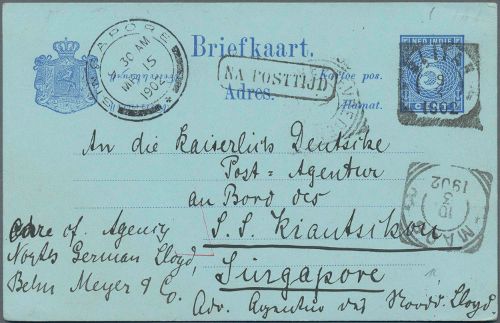 Briefkaart.
NED-INDIE
SINGAPORE
30 AM
MR 15
1902
NA POSTTIJD
Adres.
Alamat.
1902
An die Kaiserlich Deutsche
Post-Agentur
an Bord des
S. S. Kiautschou
Singapore
Adr. Agentur des Nordd. Lloyd
care of Agency
North German Lloyd,
Behn Meyer & Co.
10
3
1902